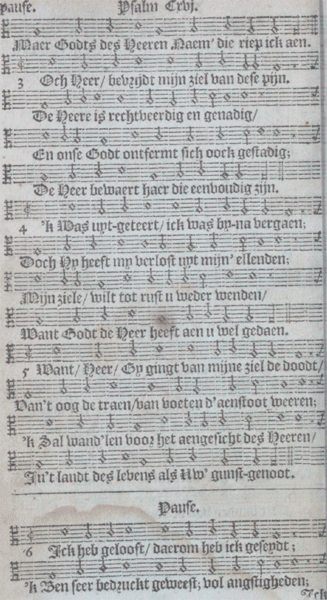 Pause. Psalm Cxvj.
Maer Godts des Heeren Naem' die riep ick aen.
3 Och Heer/ bevrydt mijn ziel van dese pijn.
De Heere is rechtveerdig en genadig/
En onse Godt ontfermt sich oock gestadig;
De Heer bewaert haer die eenvoudig zijn.
4 'k Was uyt-geteert/ ick was by-na vergaen;
Doch Hy heeft my verlost uyt mijn' ellenden;
Mijn ziele/ wilt tot rust u weder wenden/
Want Godt de Heer heeft aen u wel gedaen.
5 Want/ Heer/ Gy gingt van mijne ziel de doodt/
Van't oog de traen/van voeten d'aenstoot weeren;
'k Sal wand'len voor het aengesicht des Heeren/
In't landt des levens als Uw' gunst-genoot.
Pause.
6 Ick heb gelooft/ daerom heb ick geseydt;
'k Ben seer bedruckt geweest; vol angstigheden;
Ick